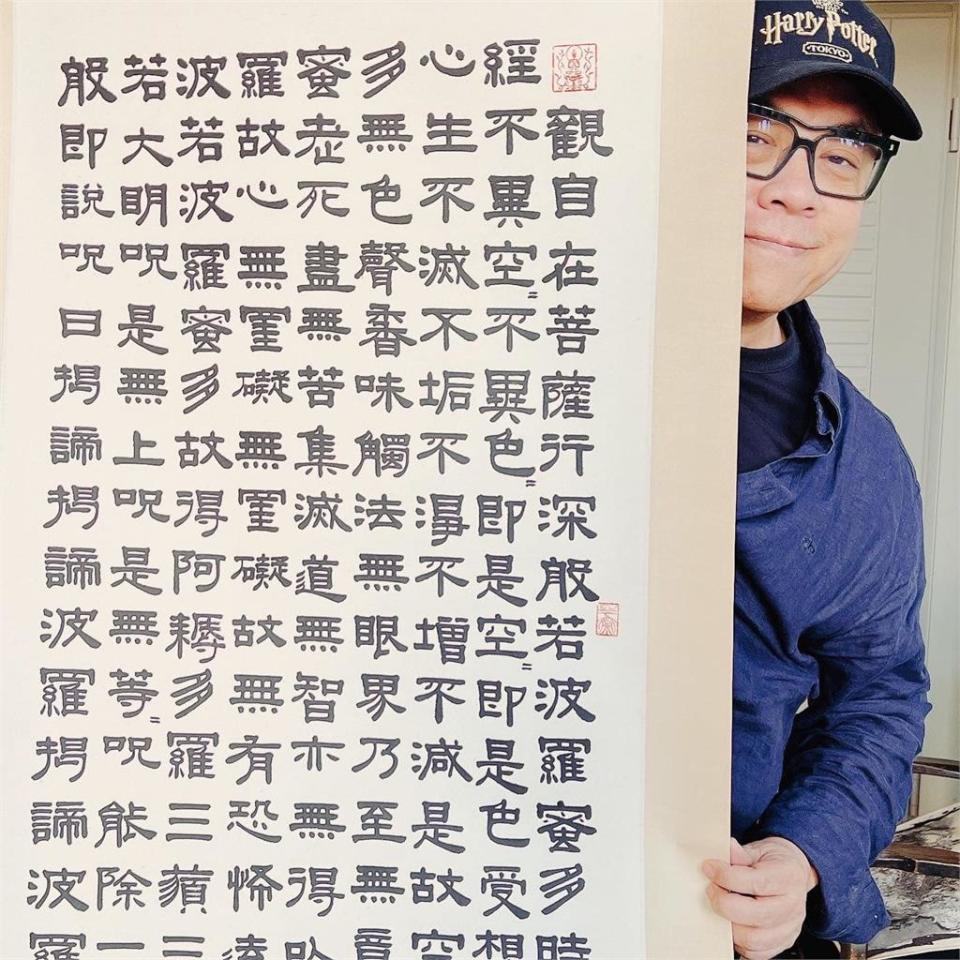 般若波羅蜜多心經
觀自在菩薩行深般若波羅蜜多時
不異空〻不異色〻即是空〻即是色受想
生不滅不垢不淨不增不減是故空
無色聲香味觸法無眼界乃至無意
老死盡無苦集滅道無智亦無得以
故心無罣礙無罣礙故無有恐怖遠
若波羅蜜多故得阿耨多羅三藐三
大明咒是無上咒是無等〻咒能除一
即說咒曰揭諦揭諦波羅揭諦波羅
Harry Potter
TOKYO